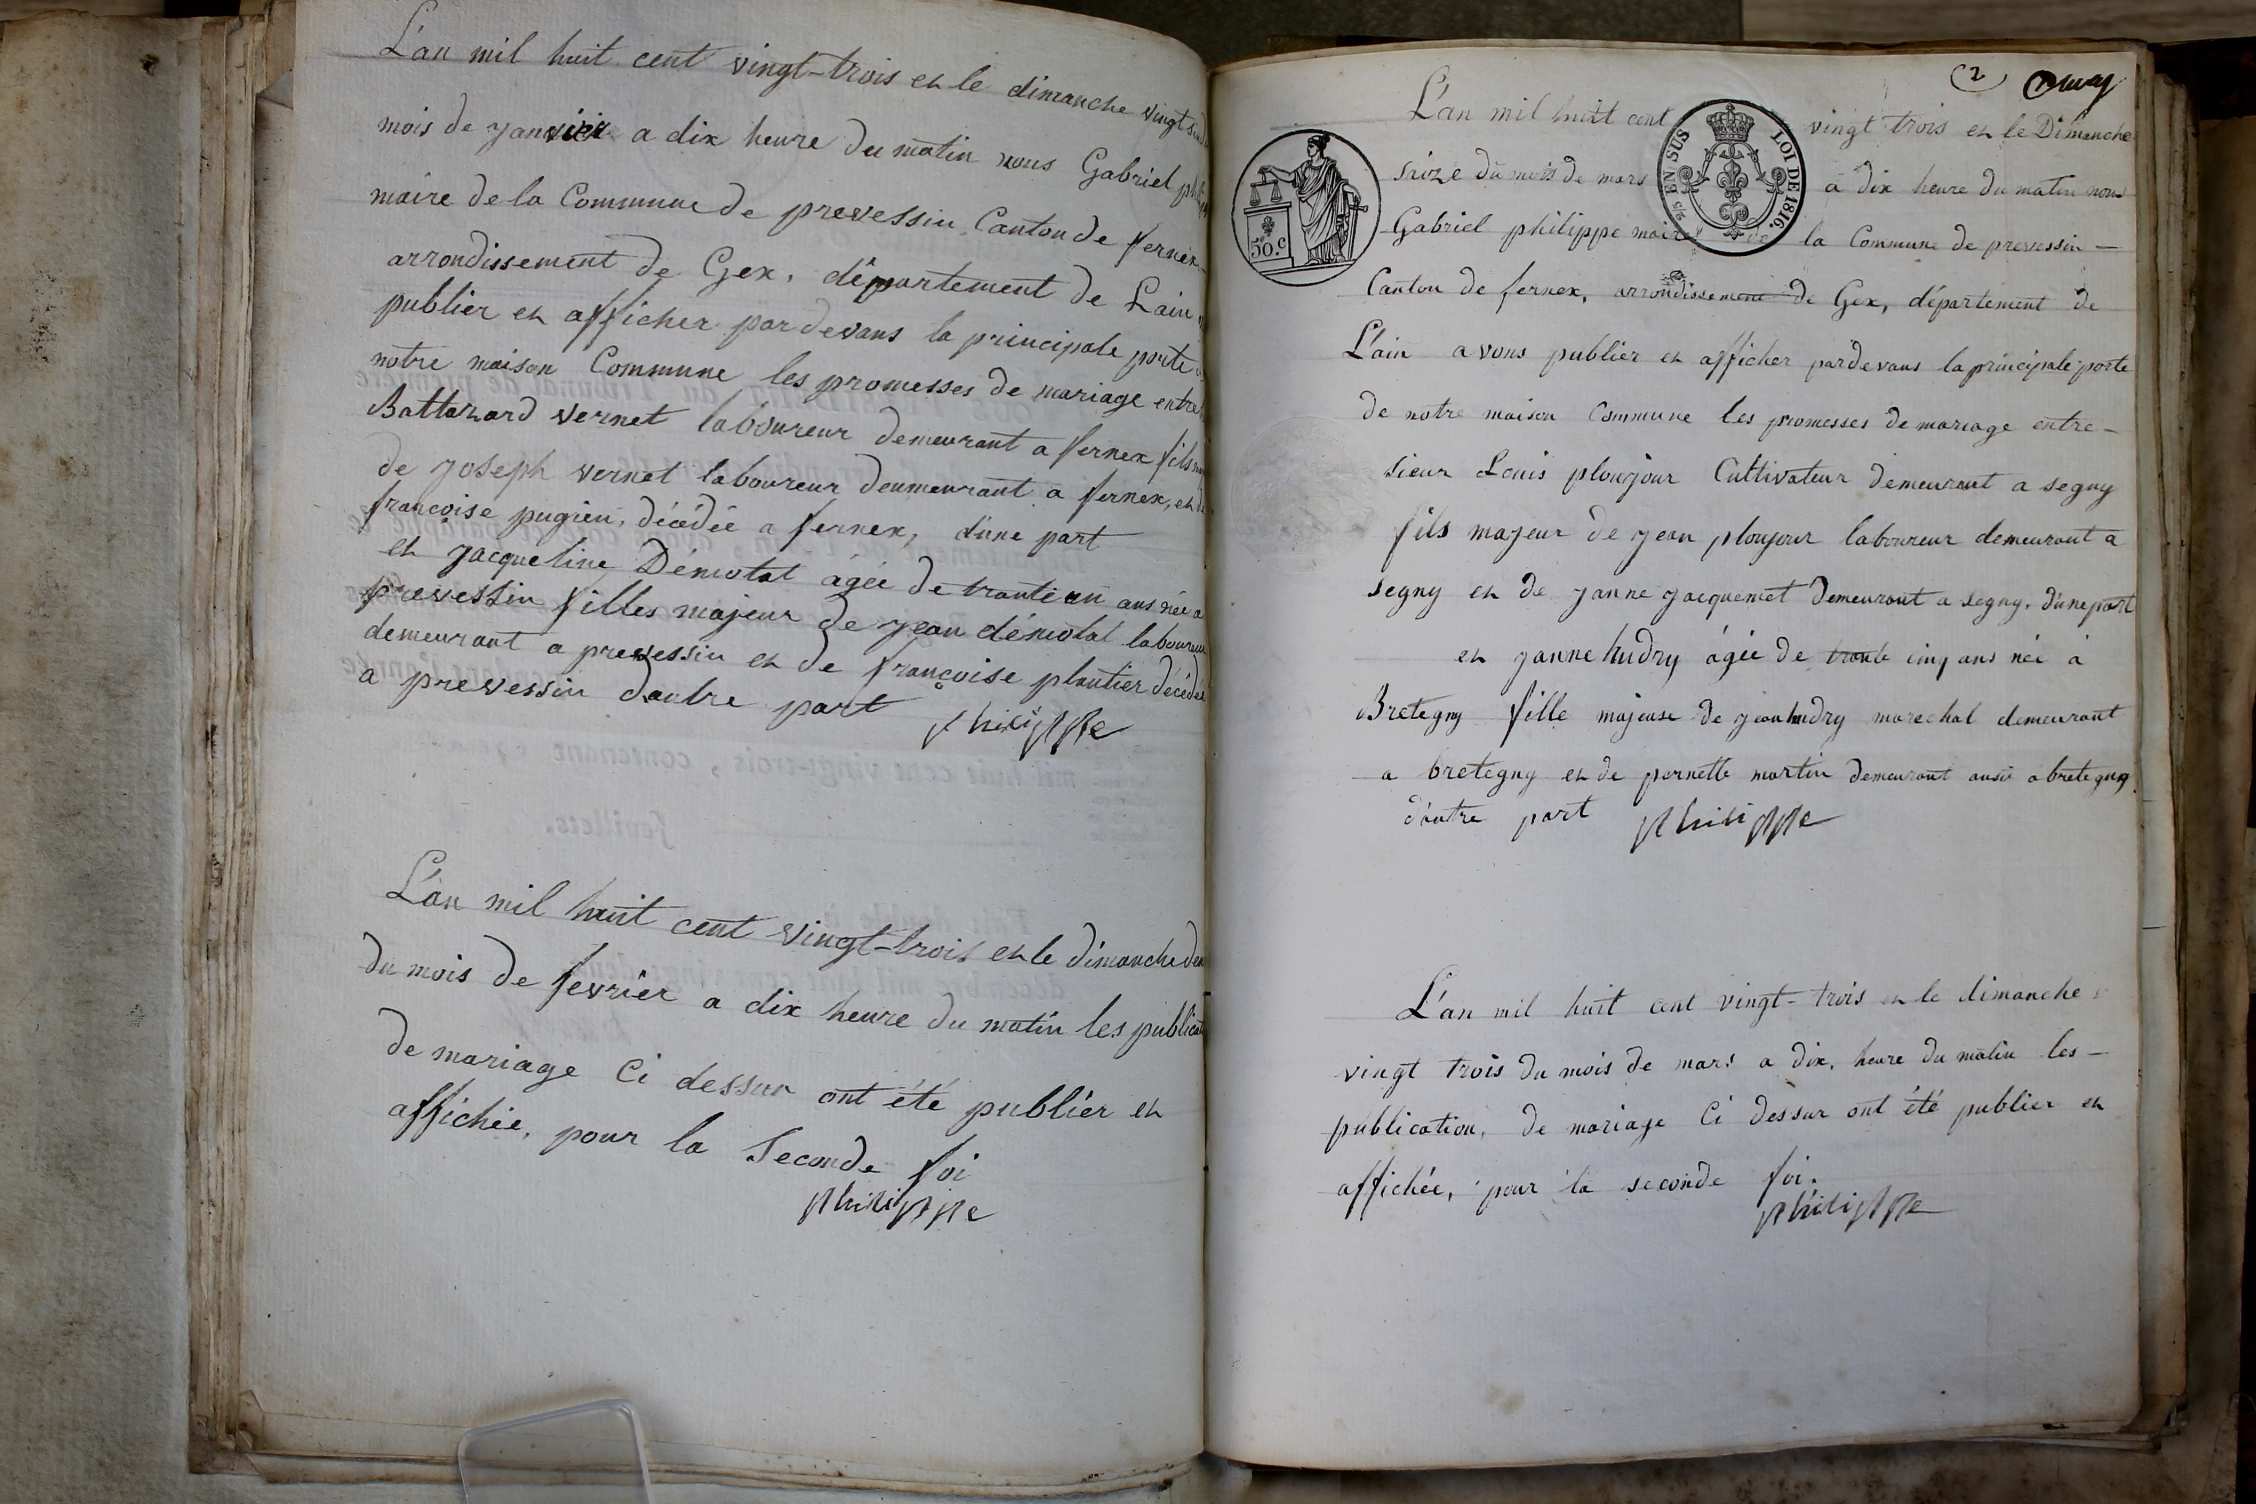 L'an mil huit cent vingt-trois et le dimanche vingt
mois de janvier a dix heure du matin nous Gabriel
maire de la Commune de prevessin Canton de fernex
arrondissement de Gex, département de Lain
publier et afficher pardevans la principale porte
notre maison Commune les promesses de mariage entre
Baltazard vernet laboureur demeurant a fernex fils
de joseph vernet laboureur deumeurant a fernex, et de
françoise pugien, décédée a fernex, d'une part
et jacqueline Démolat agée de trante un ans née a
prevessin filles majeur de jean démolat laboureur
demeurant a prevessin et de françoise plantier décédée
a prevessin dautre part philippe
L'an mil huit cent vingt-trois et le dimanche deux
du mois de fevrier a dix heure du matin les publicat
de mariage Ci dessur ont été publier et
affichée, pour la Seconde foi
philippe
2
L'an mil huit cent vingt trois et le Dimanche
seize du mois de mars a dix heure du matin nous
Gabriel philippe maire de la Commune de prevessin -
Canton de fernex, arrondissement de Gex, département de
L'ain avons publier et afficher pardevans la principale porte
de notre maison Commune les promesses de mariage entre -
sieur Louis ploujour Cultivateur demeurant a segny
fils majeur de jean ploujour laboureur demeurant a
segny et de janne jacquemet demeurant a segny. d'une part
et janne hudry ágée de trante cinq ans née à
Bretegny fille majeuse de jean hudry marechal demeurant
a bretegny et de pernette martin demeurant aussi a bretegny
d'autre part philippe
EN SUS
LOI DE 1816.
50.c
L'an mil huit cent vingt-trois et le dimanche
vingt trois du mois de mars a dix, heure du matin les -
publication, de mariage Ci dessur ont été publier et
affichée, pour la seconde foi.
philippe